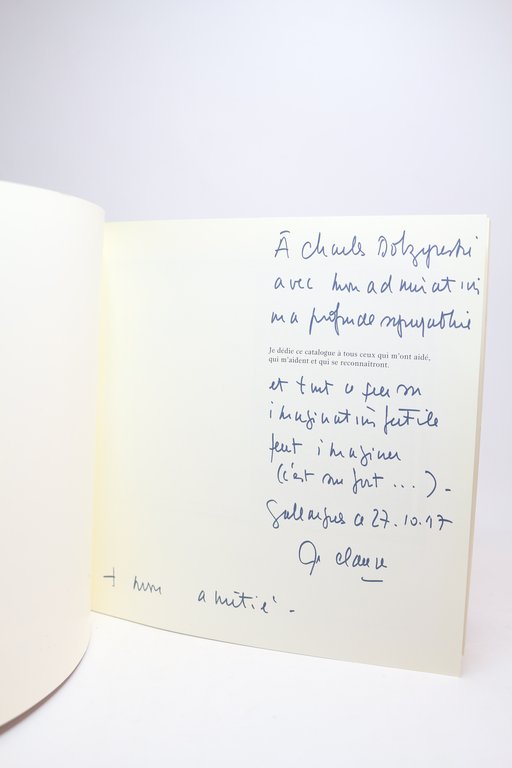 À Charles Dobzynski
avec mon admiration
ma profonde sympathie
Je dédie ce catalogue à tous ceux qui m'ont aidé,
qui m'aident et qui se reconnaîtront.
et tout ce que son
imagination fertile
peut imaginer
(c'est son fort ...). -
ce 27.10.17
+ mon amitié -